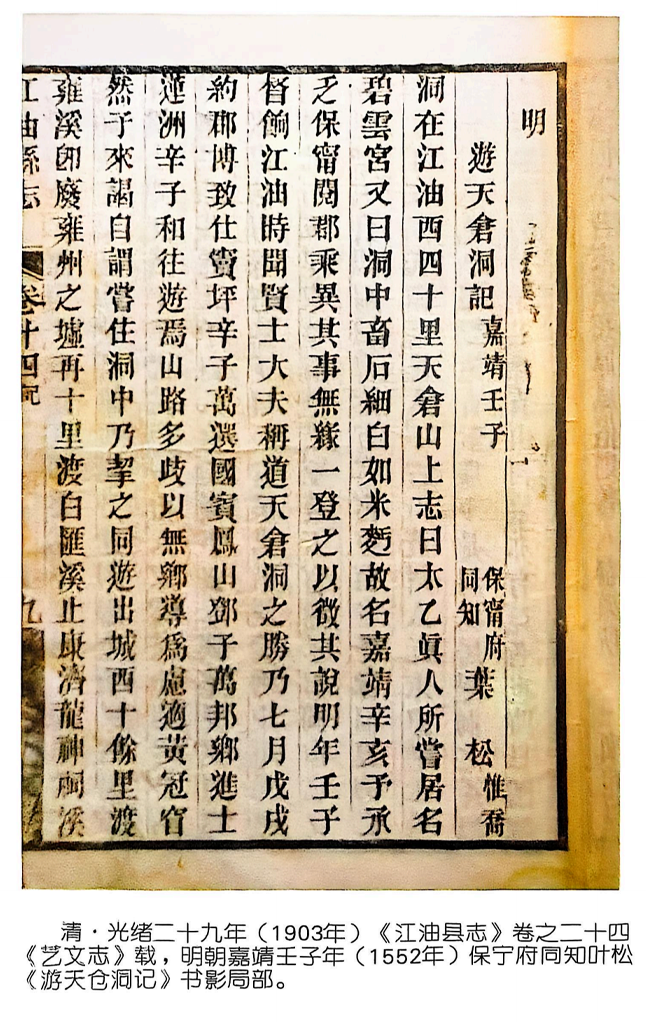 明
遊天倉洞記 嘉靖壬子 保甯府同知 葉 松 惟喬
洞在江油西四十里天倉山上志曰太乙眞人所嘗居名
碧雲宮又曰洞中畜石細白如米麪故名嘉靖辛亥予承
乏保甯閱郡乘異其事無緣一登之以徵其說明年壬子
督餉江油時聞賢士大夫稱道天倉洞之勝乃七月戊戌
約郡博致仕竇坪辛子萬選國賓鳳山鄧子萬邦鄉進士
蓮洲辛子和往遊焉山路多歧以無鄉導爲慮適黃冠
然于來謁自謂嘗住洞中乃挈之同遊出城西十餘里渡
雍溪卽廢雍州之墟再十里渡白匯溪止康濟龍神祠溪
江油縣志 卷二十四 九
清·光绪二十九年（1903年）《江油县志》卷之二十四
《艺文志》载，明朝嘉靖壬子年（1552年）保宁府同知叶松
《游天仓洞记》书影局部。